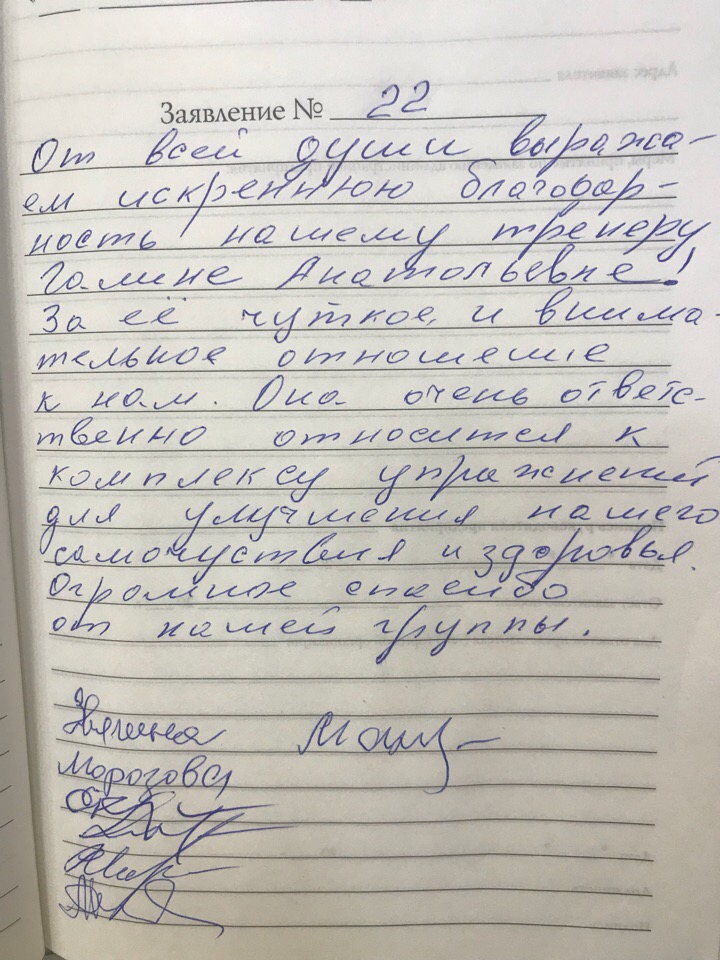 Заявление № 22
От всей души выража-
ем искреннюю благодар-
ность нашему тренеру
Галине Анатольевне!
За её чуткое и внима-
тельное отношение
к нам. Она очень ответс-
твенно относится к
комплексу упражнений
для улучшения нашего
самочуствия и здоровья.
Огромное спасибо
от нашей группы.
Морозова